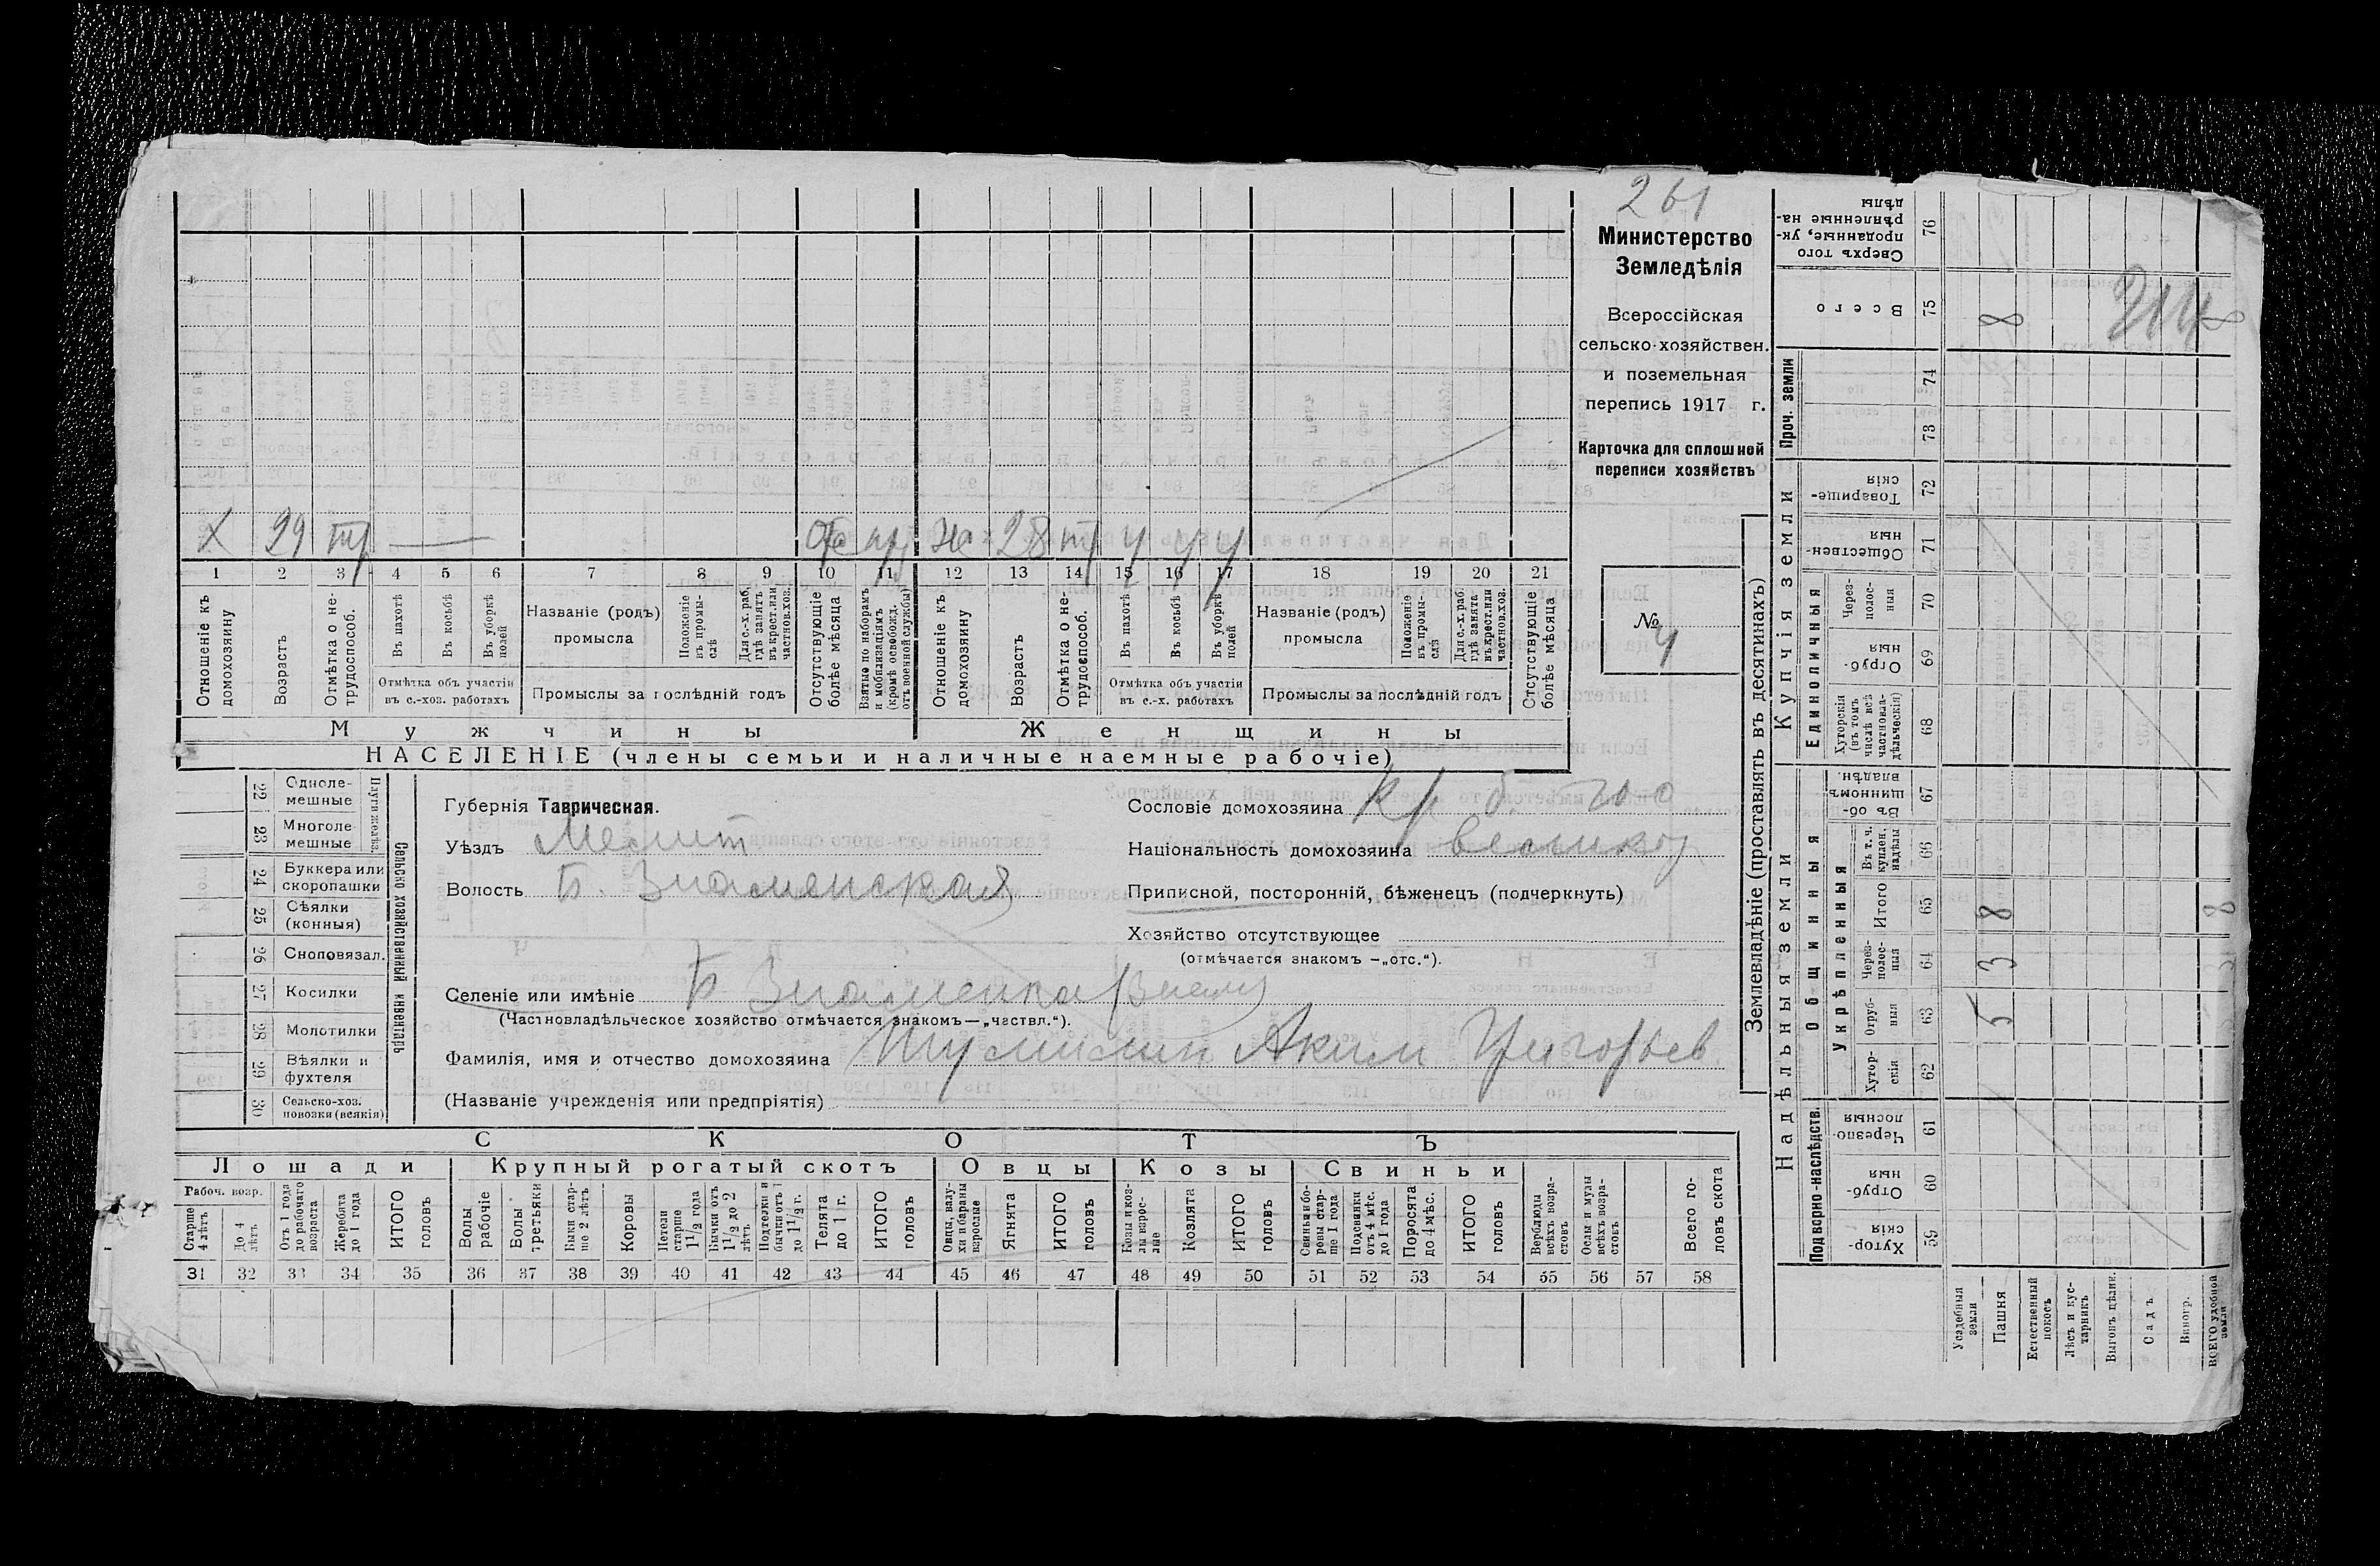 261
Министерство
Земледѣлія
Всероссійская
сельско-хозяйствен.
и поземельная
перепись 1917 г.
Карточка для сплошной
переписи хозяйствъ
№ 4
Х 29 —— ж 28 у у у
1 2 3 4 5 6 7 8 9 10 11 12 13 14 15 16 17 18 19 20 21
Отношеніе къ домохозяину
Возрастъ
Отмѣтка о не-трудоспособ.
Въ пахотѣ
Въ косьбѣ
Въ уборкѣ полей
Отмѣтка объ участіи въ с.-хоз. работахъ
Названіе (родъ) промысла
Положеніе въ промы-слѣ
Для с.-х. раб. гдѣ занятъ въ крест. или частнов. хоз.
Промыслы за послѣдній годъ
Отсутствующіе болѣе мѣсяца
Взятые по наборамъ и мобилизаціямъ (кромѣ освобожд. отъ военной службы)
Отношеніе къ домохозяину
Возрастъ
Отмѣтка о не-трудоспособ.
Въ пахотѣ
Въ косьбѣ
Въ уборкѣ полей
Отмѣтка объ участіи въ с.-х. работахъ
Названіе (родъ) промысла
Положеніе въ промы-слѣ
Для с.-х. раб. гдѣ занята въ крест. или частнов. хоз.
Промыслы за послѣдній годъ
Отсутствующіе болѣе мѣсяца
Мужчины Женщины
НАСЕЛЕНІЕ (члены семьи и наличные наемные рабочіе)
Сельско хозяйственный инвентарь
Плуги желѣз.
22 Одноле-мешные
23 Многоле-мешные
24 Буккера или скоропашки
25 Сѣялки (конныя)
26 Сноповязал.
27 Косилки
28 Молотилки
29 Вѣялки и фухтеля
30 Сельско-хоз. повозки (всякія)
Губернія Таврическая.
Уѣздъ Мелит
Волость Б. Знаменская
Сословіе домохозяина Кр. б.
Національность домохозяина великор
Приписной, посторонній, бѣженецъ (подчеркнуть)
Хозяйство отсутствующее
(отмѣчается знакомъ —„отс.“).
Селеніе или имѣніе Б Знаменка
(Частновладѣльческое хозяйство отмѣчается знакомъ—„чествл.“).
Фамилія, имя и отчество домохозяина Аким Григорьев
(Названіе учрежденія или предпріятія)
СКОТЪ
Лошади Крупный рогатый скотъ Овцы Козы Свиньи
Рабоч. возр.
Старше 4 лѣтъ
До 4 лѣтъ
Отъ 1 года до рабочаго возраста
Жеребята до 1 года
ИТОГО головъ
Волы рабочіе
Волы третьяки
Быки стар-ше 2 лѣтъ
Коровы
Нетели старше 1½ года
Бычки отъ 1½ до 2 лѣтъ
Подтелки и бычки отъ 1 до 1½ г.
Телята до 1 г.
ИТОГО головъ
Овцы, валу-хи и бараны взрослые
Ягнята
ИТОГО головъ
Козы и коз-лы взрос-лые
Козлята
ИТОГО головъ
Свиньи и бо-ровы стар-ше 1 года
Подсвинки отъ 4 мѣс. до 1 года
Поросята до 4 мѣс.
ИТОГО головъ
Верблюды всѣхъ возра-стовъ
Ослы и мулы всѣхъ возра-стовъ
Всего го-ловъ скота
31 32 33 34 35 36 37 38 39 40 41 42 43 44 45 46 47 48 49 50 51 52 53 54 55 56 57 58
Землевладѣніе (проставлять въ десятинахъ)
Надѣльныя земли
Купчія земли
Проч. земли
Подворно-наслѣдств.
Общинныя
Укрѣпленныя
Единоличныя
Хутор-скія 59
Отруб-ныя 60
Черезпо-лосныя 61
Хутор-скія 62
Отруб-ныя 63
Через-полос-ныя 64
Итого 65
Въ т. ч. куплен. надѣлы 66
Въ об-щинномъ владѣн. 67
Хуторскія (въ томъ числѣ всѣ частновла-дѣльческія) 68
Отруб-ныя 69
Через-полос-ныя 70
Обществен-ныя 71
Товарище-скія 72
73
74
Всего 75
Сверхъ того проданные, ук-рѣпленные на-дѣлы 76
Усадебныя земли
Пашня 5 3 8 8
Естественный покосъ
Лѣсъ и кус-тарникъ
Выгонъ цѣлин.
Садъ
Виногр.
ВСЕГО удобной земли 8 8
214